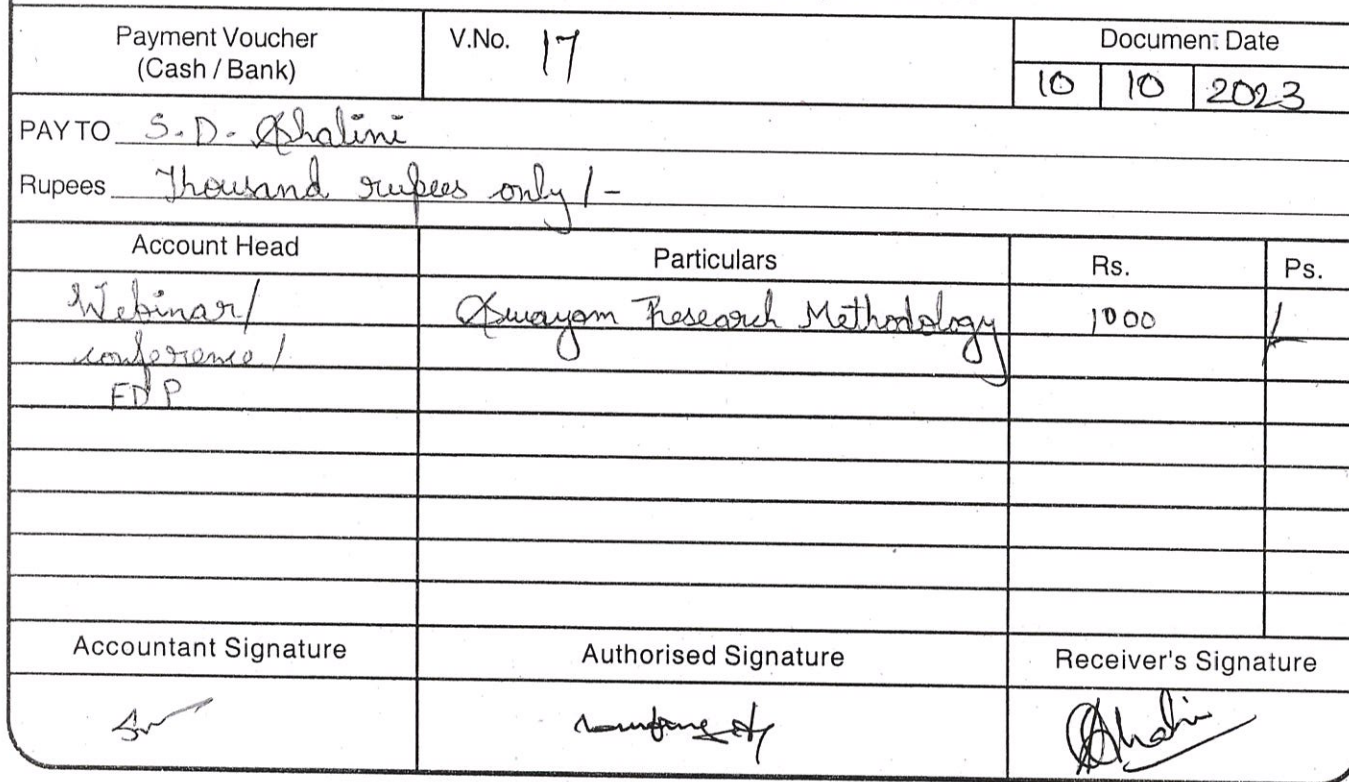 Payment Voucher
(Cash / Bank)
V.No. 17
Document Date
10 10 2023
PAY TO S.D. Shalini
Rupees Thousand rupees only /-
Account Head Particulars Rs. Ps.
Webinar/ Swayam Research Methodology 1000
conference/
FDP
Accountant Signature Authorised Signature Receiver's Signature
Shalini